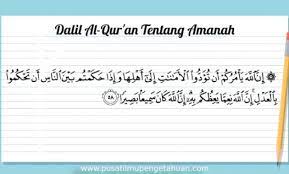 Dalil Al-Qur'an Tentang Amanah
۞ إِنَّ اللَّهَ يَأْمُرُكُمْ أَن تُؤَدُّوا الْأَمَانَاتِ إِلَىٰ أَهْلِهَا وَإِذَا حَكَمْتُم بَيْنَ النَّاسِ أَن تَحْكُمُوا
بِالْعَدْلِ إِنَّ اللَّهَ نِعِمَّا يَعِظُكُم بِهِ إِنَّ اللَّهَ كَانَ سَمِيعًا بَصِيرًا ٥٨
www.pusatilmupengetahuan.com